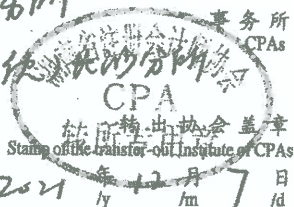 分所
事务所
CPAs
沙分所
湖南省注册会计师协会
CPA
转出协会盖章
Stamp of the transfer-out Institute of CPAs
2021年12月7日
/y /m /d